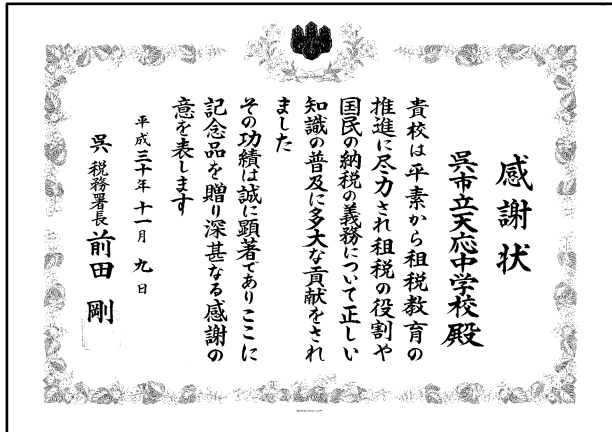 感謝状
呉市立天応中学校殿
貴校は平素から租税教育の
推進に尽力され租税の役割や
国民の納税の義務について正しい
知識の普及に多大な貢献をされ
ました
その功績は誠に顕著でありここに
記念品を贈り深甚なる感謝の
意を表します
平成三十年十一月九日
呉税務署長前田剛